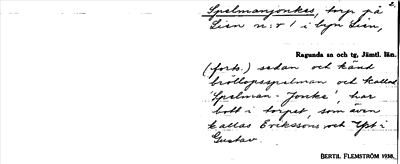 2.
Spelmanjonkes, torp på
Lien n:r 1 i byn Lien,
Ragunda sn och tg, Jämtl. län.
(forts.) sedan och känd
bröllopsspelman och kallad
'Spelman-Jonke', har
bott i torpet, som även
kallas Erikssons och i
Gustav.
BERTIL FLEMSTRÖM 1938.